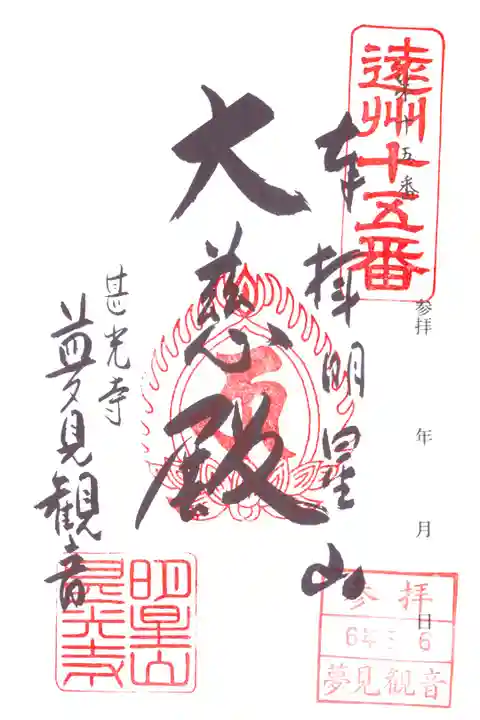 遠州十五番
第十五番
参拝 年 月 日
奉拝 明星山
大慈殿
甚光寺
夢見観音
参拝
6年 6
夢見観音
明星山